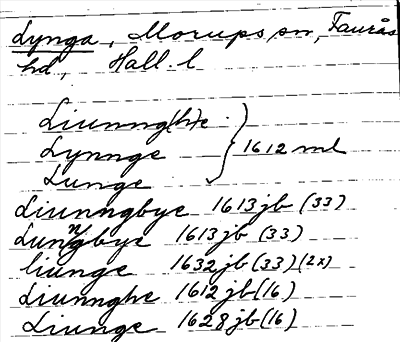 Lynga, Morups sn, Faurås
hd, Hall. l
Liunng(h)e
Lynnge } 1612 ml
Lunge
Liunngbye 1613 jb (33)
Lunngbye 1613 jb (33)
liunge 1632 jb (33) (2x)
Liunnghe 1612 jb (16)
Liunge 1628 jb (16)